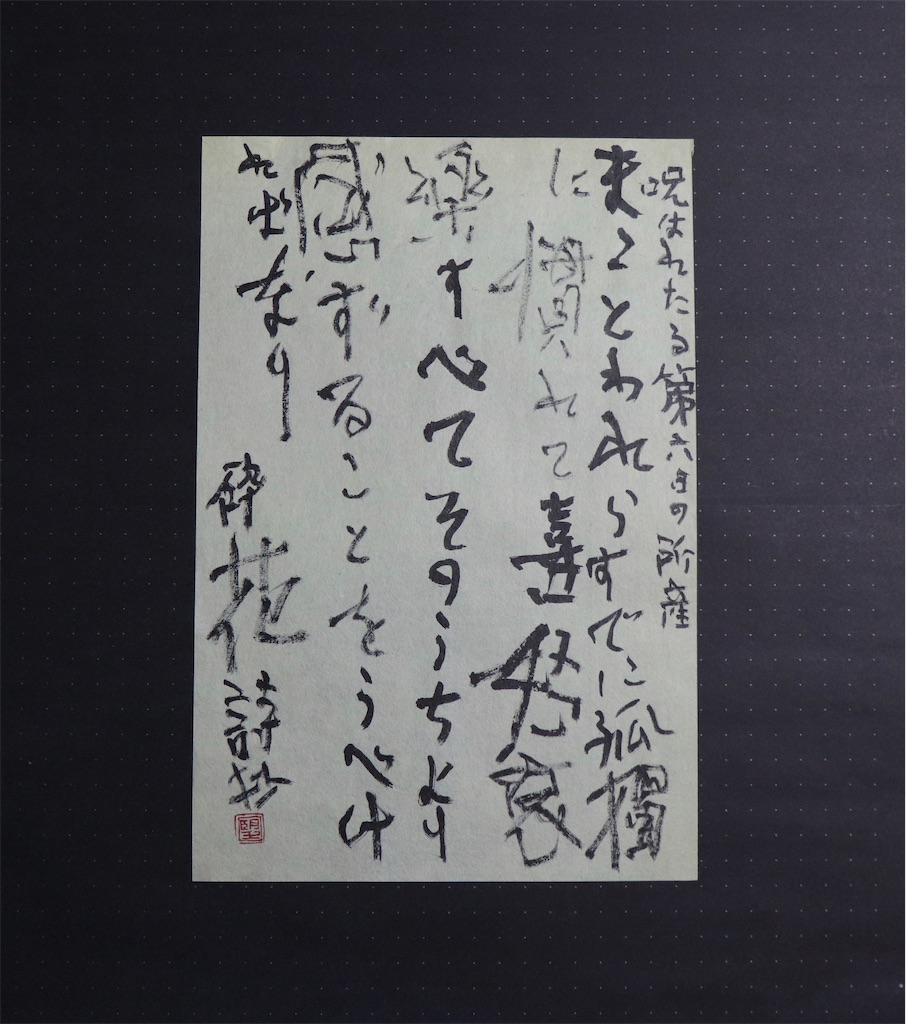 呪はれたる第六日の所産
まことわれらすでに孤獨
に慣れて喜怒哀
樂すべてそのうちより
感ずることをうべけ
ればなり
砕花詩抄